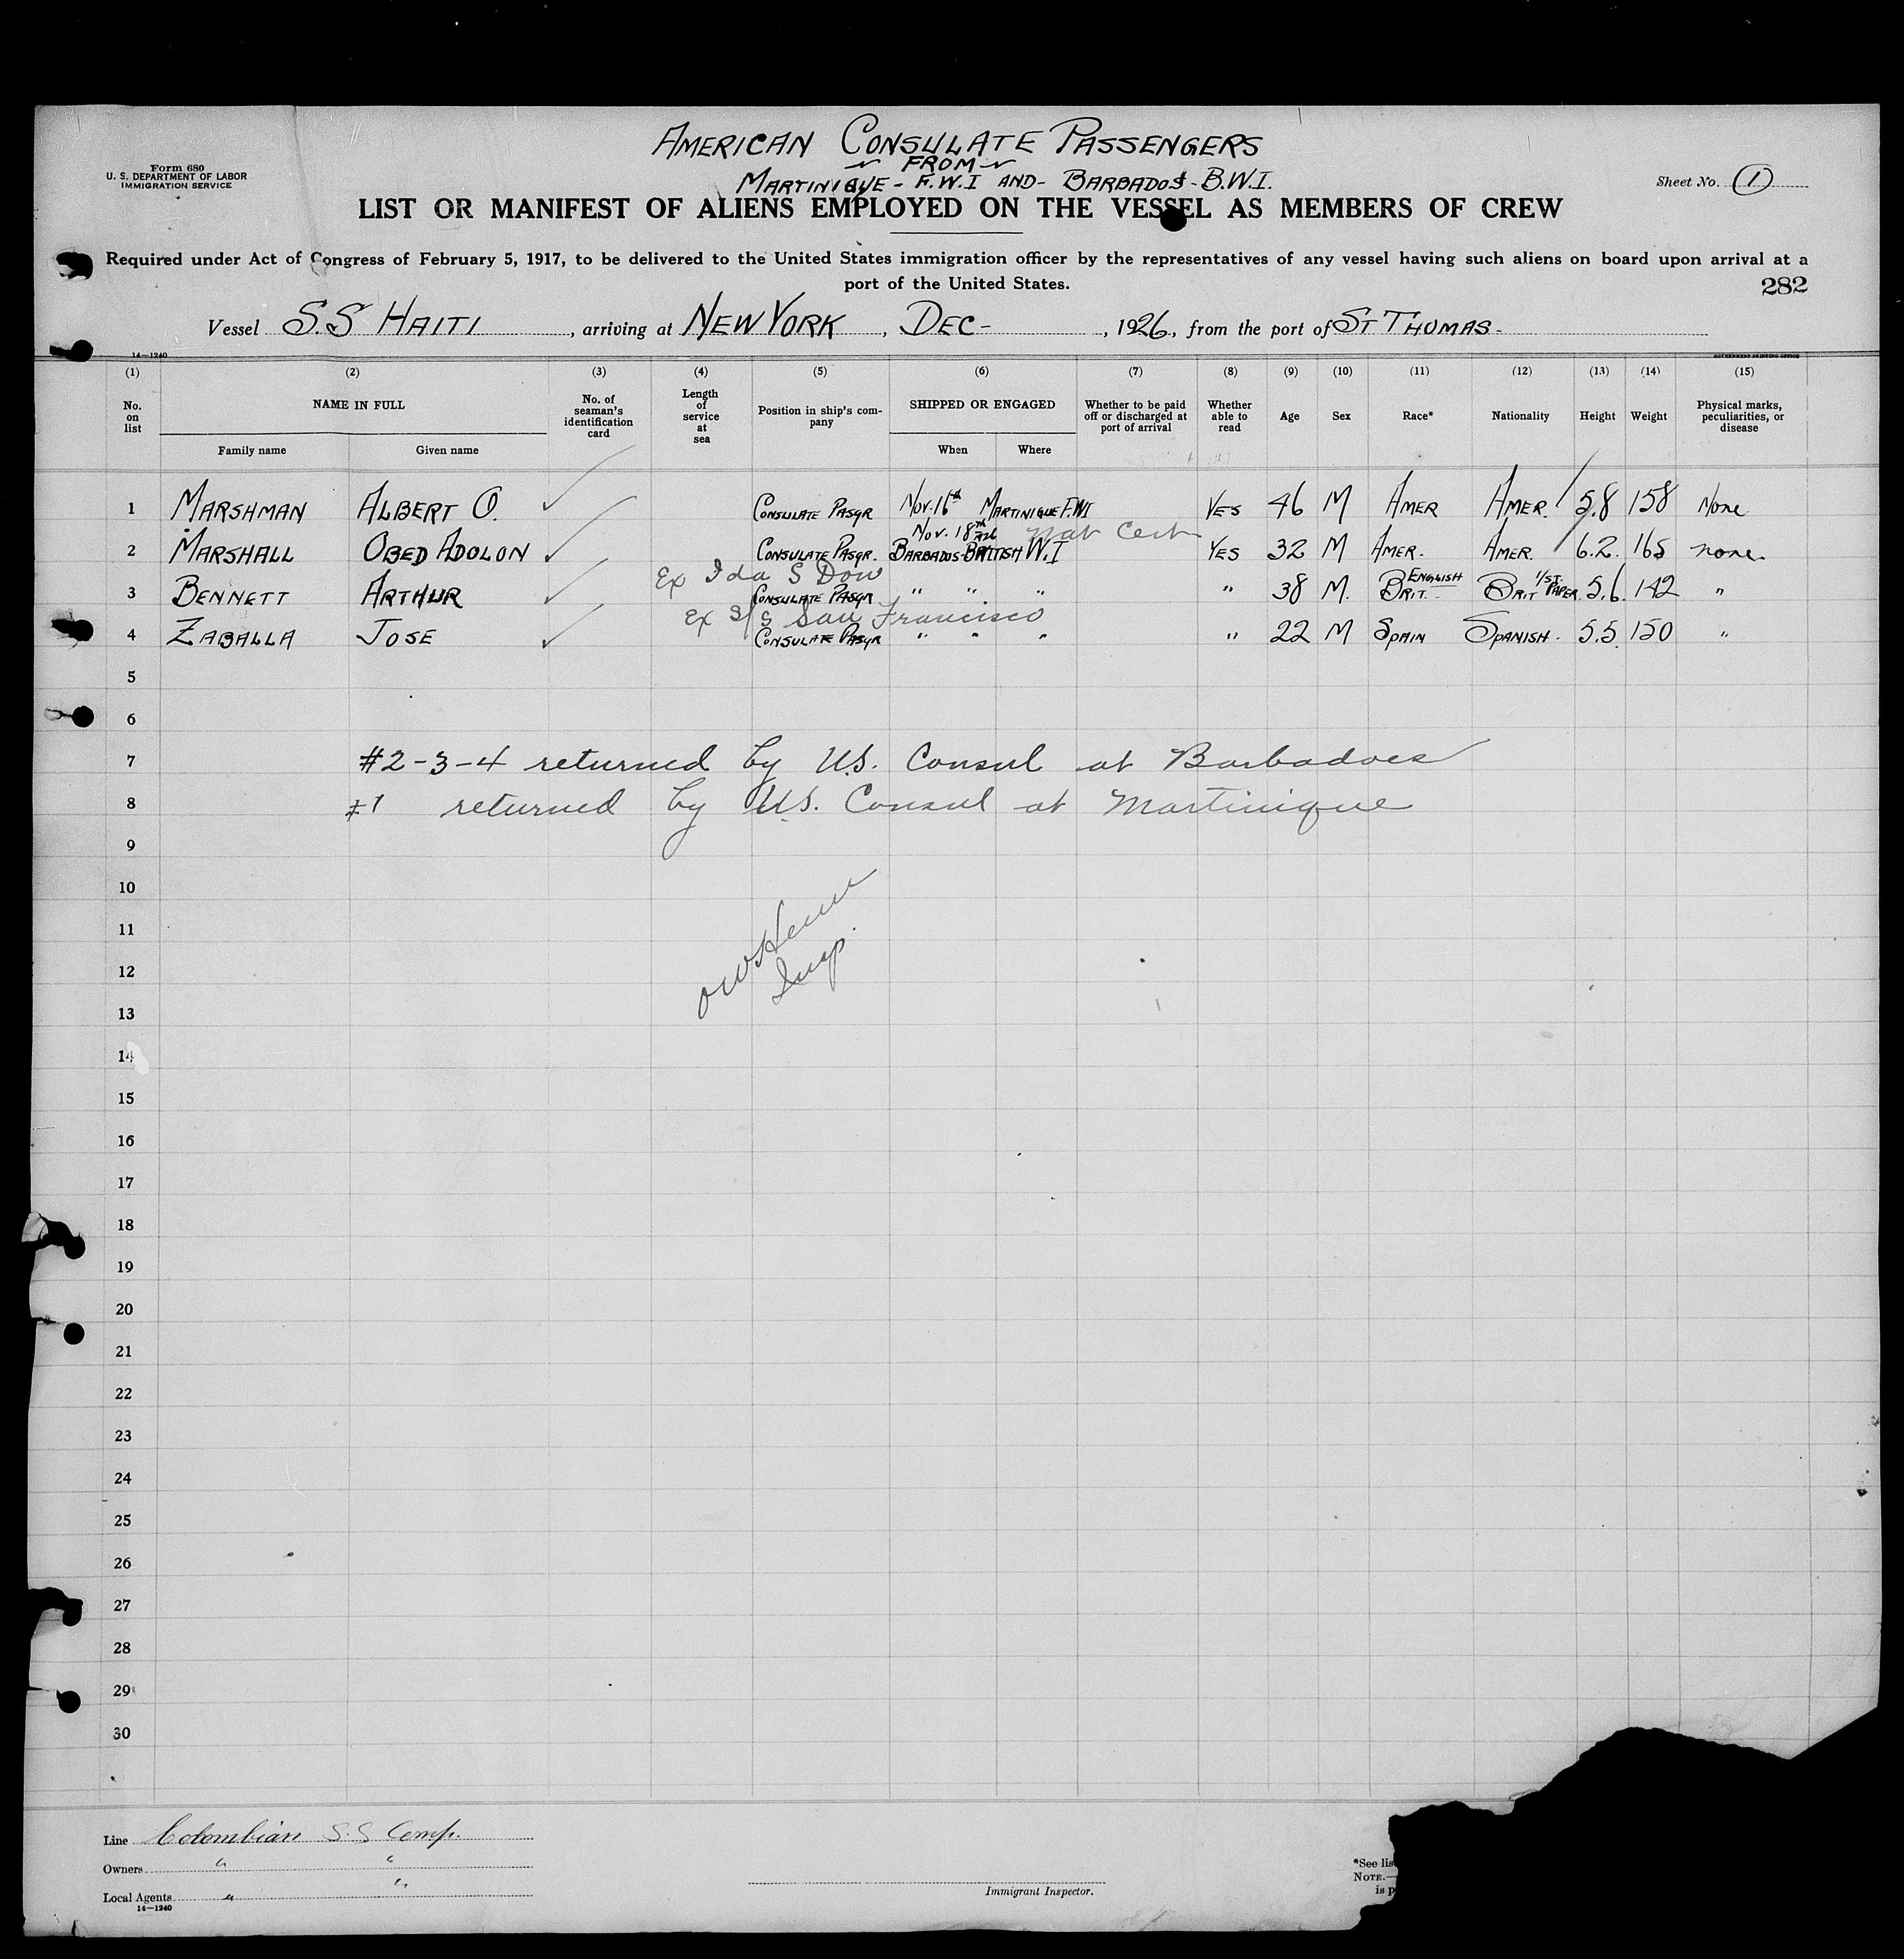 AMERICAN CONSULATE PASSENGERS
FROM
MARTINIQUE - F.W.I AND - BARBADOS - B.W.I.
Form 680
U. S. DEPARTMENT OF LABOR
IMMIGRATION SERVICE
Sheet No. 1
LIST OR MANIFEST OF ALIENS EMPLOYED ON THE VESSEL AS MEMBERS OF CREW
Required under Act of Congress of February 5, 1917, to be delivered to the United States immigration officer by the representatives of any vessel having such aliens on board upon arrival at a
port of the United States.
282
Vessel S.S HAITI, arriving at NEW YORK, DEC-, 1926, from the port of ST THOMAS-
14—1240
GOVERNMENT PRINTING OFFICE
(1) (2) (3) (4) (5) (6) (7) (8) (9) (10) (11) (12) (13) (14) (15)
No. on list
NAME IN FULL
Family name
Given name
No. of seaman's identification card
Length of service at sea
Position in ship's company
SHIPPED OR ENGAGED
When
Where
Whether to be paid off or discharged at port of arrival
Whether able to read
Age
Sex
Race*
Nationality
Height
Weight
Physical marks, peculiarities, or disease
1 MARSHMAN ALBERT O. CONSULATE PASGR NOV. 16th MARTINIQUE F.WI YES 46 M AMER AMER. 5.8 158 None
Nov. 18th 1926 nat Cert
2 MARSHALL OBED ADOLON CONSULATE PASGR. BARBADOS-BRITISH W.I YES 32 M AMER. AMER. 6.2. 165 none.
Ex Ida S Dow
3 BENNETT ARTHUR CONSULATE PASGR " " " " 38 M. ENGLISH BRIT. BRIT 1/ST. PAPER. 5.6. 142 "
Ex S/S San Francisco
4 ZABALLA JOSE CONSULATE PASGR " " " " 22 M SPAIN SPANISH. 5.5. 150 "
5
6
7 #2-3-4 returned by U.S. Consul at Barbadoes
8 #1 returned by U.S. Consul at Martinique
9
10
11
12
Insp.
13
14
15
16
17
18
19
20
21
22
23
24
25
26
27
28
29
30
Line Colombian S.S Comp.
Owners " "
Local Agents " "
14—1240
Immigrant Inspector.
*See lis
NOTE.—
is p